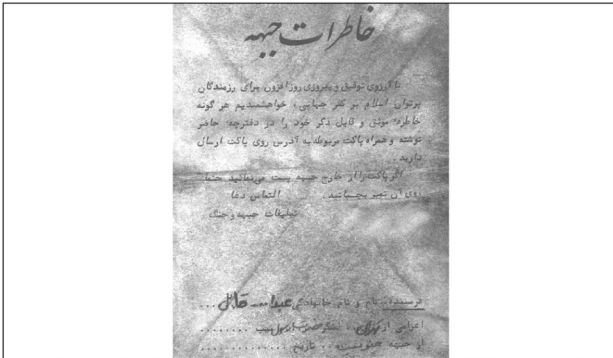 خاطرات جبهه
با آرزوی توفیق و پیروزی روزافزون برای رزمندگان
پرتوان اسلام بر کفر جهانی، خواهشمندیم هرگونه
خاطره موثق و قابل ذکر خود را در دفترچه حاضر
نوشته و همراه پاکت مربوطه به آدرس روی پاکت ارسال
دارید.
اگر پاکت را از خارج جبهه پست می‌نمائید حتما
روی آن تمبر بچسبانید. التماس دعا
تبلیغات جبهه و جنگ
فرستنده: نام و نام خانوادگی عبدا... قابل
اعزامی از تهران
از جبهه تاریخ